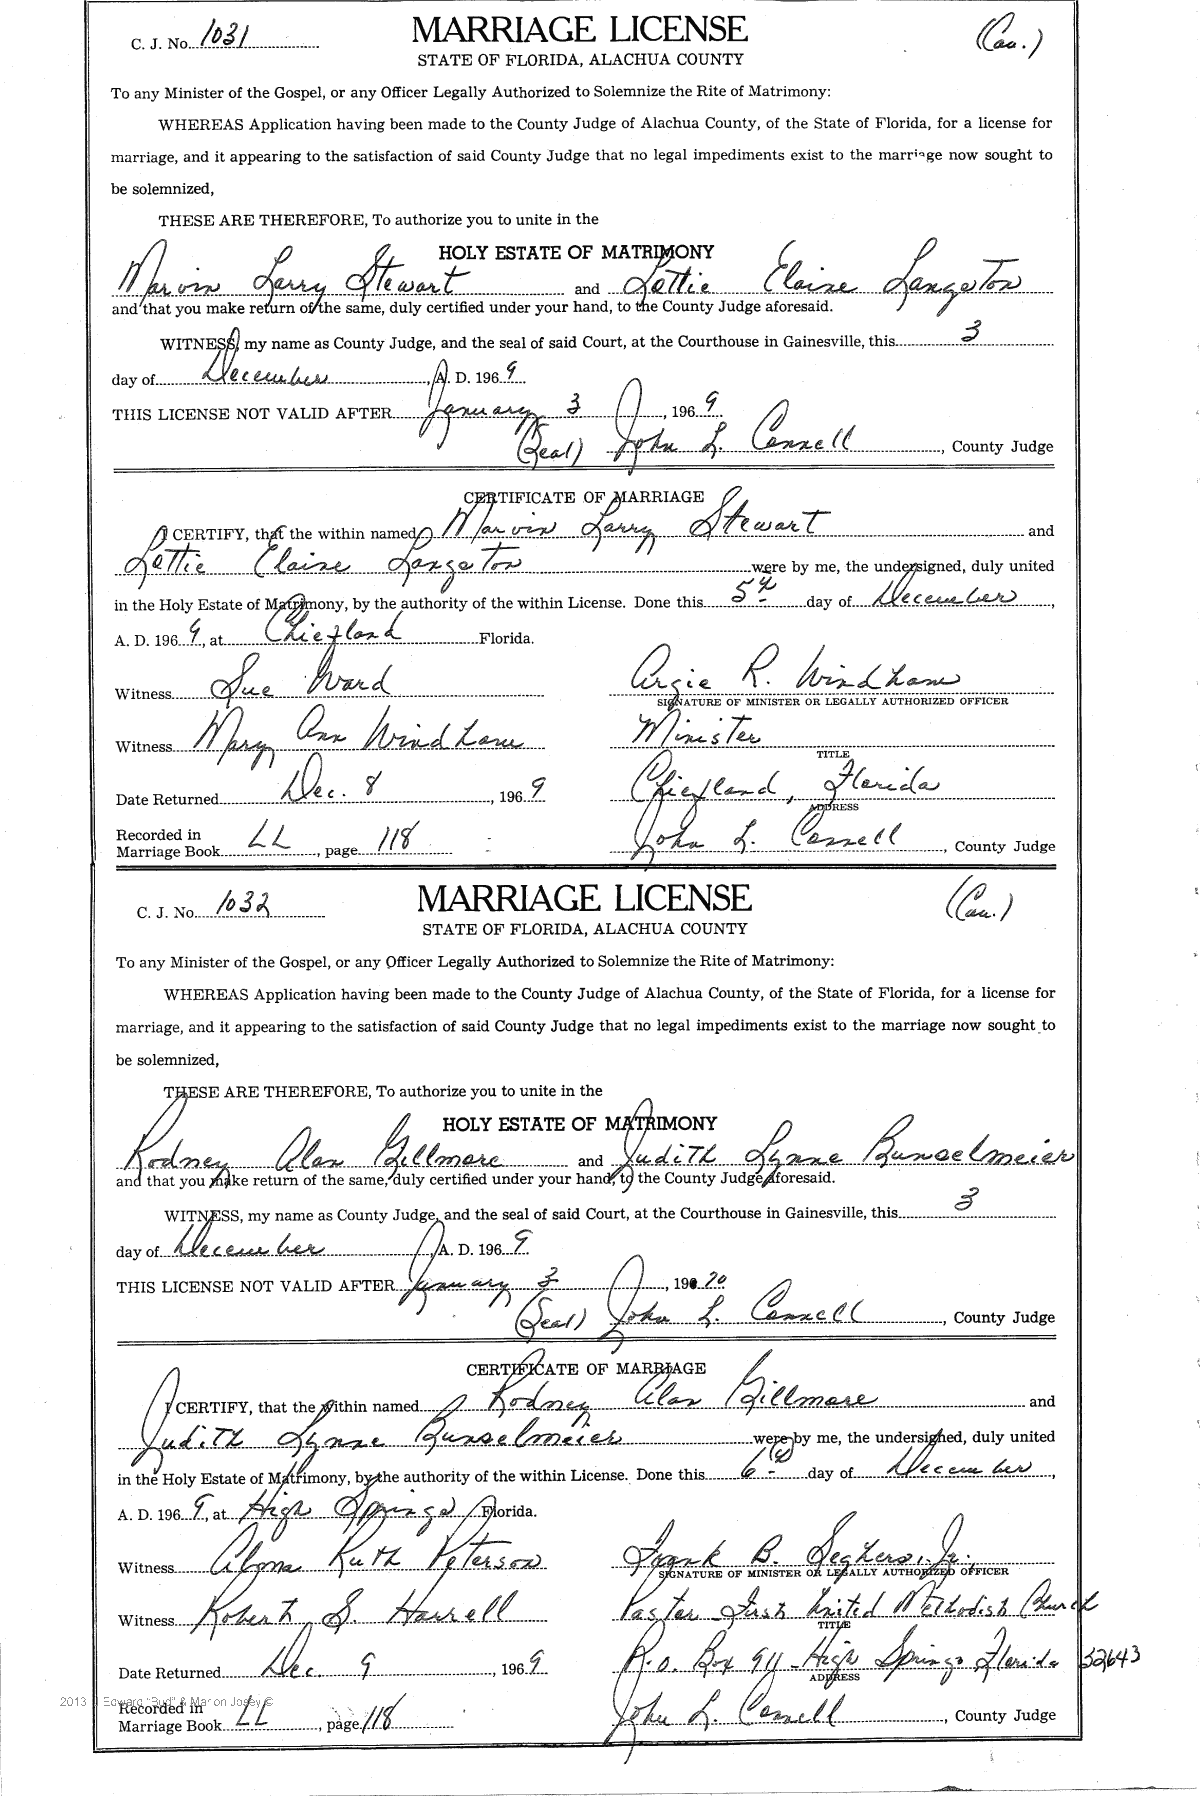 C. J. No. 1031
MARRIAGE LICENSE
(Cau.)
STATE OF FLORIDA, ALACHUA COUNTY
To any Minister of the Gospel, or any Officer Legally Authorized to Solemnize the Rite of Matrimony:
WHEREAS Application having been made to the County Judge of Alachua County, of the State of Florida, for a license for
marriage, and it appearing to the satisfaction of said County Judge that no legal impediments exist to the marriage now sought to
be solemnized,
THESE ARE THEREFORE, To authorize you to unite in the
HOLY ESTATE OF MATRIMONY
Marvin Larry Stewart and Lottie Elaine Langston
and that you make return of the same, duly certified under your hand, to the County Judge aforesaid.
WITNESS, my name as County Judge, and the seal of said Court, at the Courthouse in Gainesville, this 3
day of December, A. D. 196 9
THIS LICENSE NOT VALID AFTER January 3, 196 9
(Seal) John L. Connell, County Judge
CERTIFICATE OF MARRIAGE
I CERTIFY, that the within named Marvin Larry Stewart and
Lottie Elaine Langston were by me, the undersigned, duly united
in the Holy Estate of Matrimony, by the authority of the within License. Done this 5th day of December,
A. D. 196 9, at Chiefland Florida.
Witness Sue Ward
Argie R. Windham
SIGNATURE OF MINISTER OR LEGALLY AUTHORIZED OFFICER
Witness Mary Ann Windham
Minister
TITLE
Date Returned Dec. 8, 196 9
Chiefland, Florida
ADDRESS
Recorded in
Marriage Book LL, page 118
John L. Connell, County Judge
C. J. No. 1032
MARRIAGE LICENSE
(Cau.)
STATE OF FLORIDA, ALACHUA COUNTY
To any Minister of the Gospel, or any Officer Legally Authorized to Solemnize the Rite of Matrimony:
WHEREAS Application having been made to the County Judge of Alachua County, of the State of Florida, for a license for
marriage, and it appearing to the satisfaction of said County Judge that no legal impediments exist to the marriage now sought to
be solemnized,
THESE ARE THEREFORE, To authorize you to unite in the
HOLY ESTATE OF MATRIMONY
Rodney Alan Gillmore and Judith Lynne Bunselmeier
and that you make return of the same, duly certified under your hand, to the County Judge aforesaid.
WITNESS, my name as County Judge, and the seal of said Court, at the Courthouse in Gainesville, this 3
day of December, A. D. 196 9.
THIS LICENSE NOT VALID AFTER January 3, 19 70
(Seal) John L. Connell, County Judge
CERTIFICATE OF MARRIAGE
I CERTIFY, that the within named Rodney Alan Gillmore and
Judith Lynne Bunselmeier were by me, the undersigned, duly united
in the Holy Estate of Matrimony, by the authority of the within License. Done this 6th day of December,
A. D. 196 9, at High Springs Florida.
Witness Alma Ruth Peterson
Frank B. Seghers, Jr.
SIGNATURE OF MINISTER OR LEGALLY AUTHORIZED OFFICER
Witness Robert S. Harrell
Pastor First United Methodist Church
TITLE
Date Returned Dec. 9, 196 9
P.O. Box 911 High Springs Florida 32643
ADDRESS
2013 Edward "Bud" & Marion Josey ©
Recorded in
Marriage Book LL, page 118
John L. Connell, County Judge